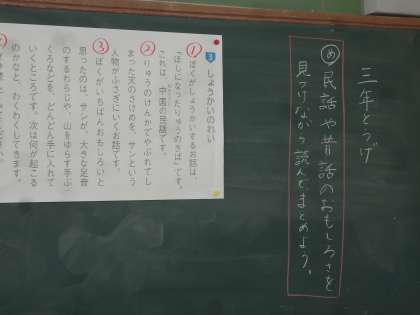 三年とうげ
め 民話や昔話のおもしろさを
見つけながら読んで、まとめよう。
3 しょうかいのれい
① ぼくがしょうかいするお話は、
「ほしになったりゅうのきば」です。
これは、中国の民話です。
② りゅうのけんかでやぶれてし
まった天のさけめを、サンという
人物がふさぎにいくお話です。
③ ぼくがいちばんおもしろいと
思ったのは、サンが、大きな足音
のするわらじや、山をゆらす手ぶ
くろなどを、どんどん手に入れて
いくところです。次は何が起こる
のかなと、わくわくしてきます。